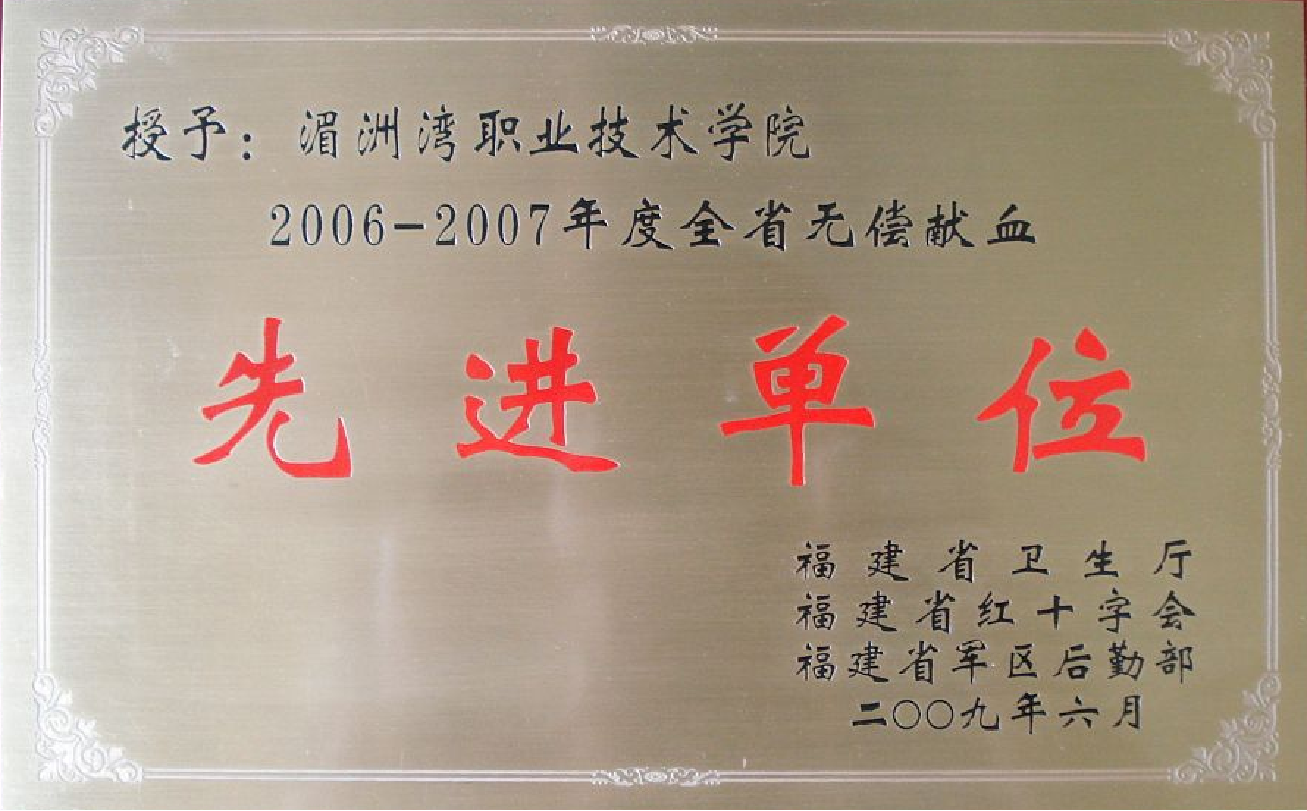 授予：湄洲湾职业技术学院
2006-2007年度全省无偿献血
先进单位
福建省卫生厅
福建省红十字会
福建省军区后勤部
二〇〇九年六月